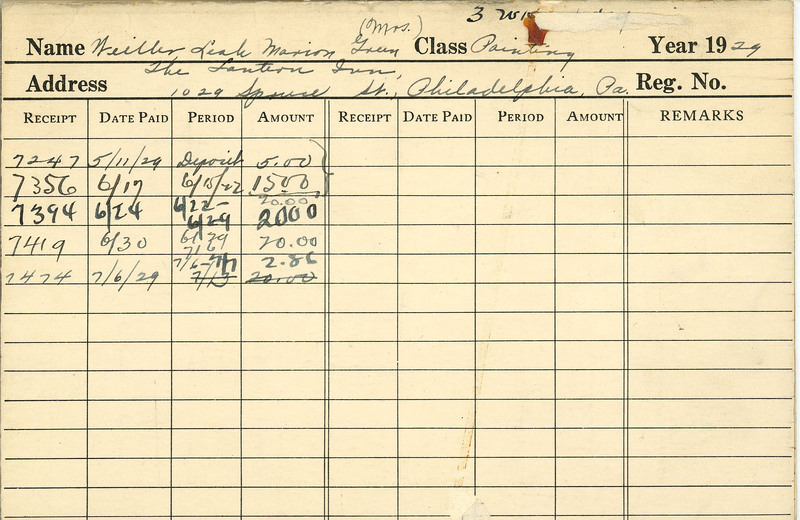 (Mrs.)
3 wk
Name Weiller Leah Marion Green Class Painting Year 1929
The Lantern Inn,
Address 1029 Spruce St., Philadelphia, Pa. Reg. No.
RECEIPT DATE PAID PERIOD AMOUNT RECEIPT DATE PAID PERIOD AMOUNT REMARKS
7247 5/11/29 Deposit 5.00
7356 6/17 6/15/-22 1500
20.00
7394 6/24 6/22- 6/29 2000
7419 6/30 6/29 7/6 20.00
7/6-7/7 2.86
7474 7/6/29 7/13 20.00